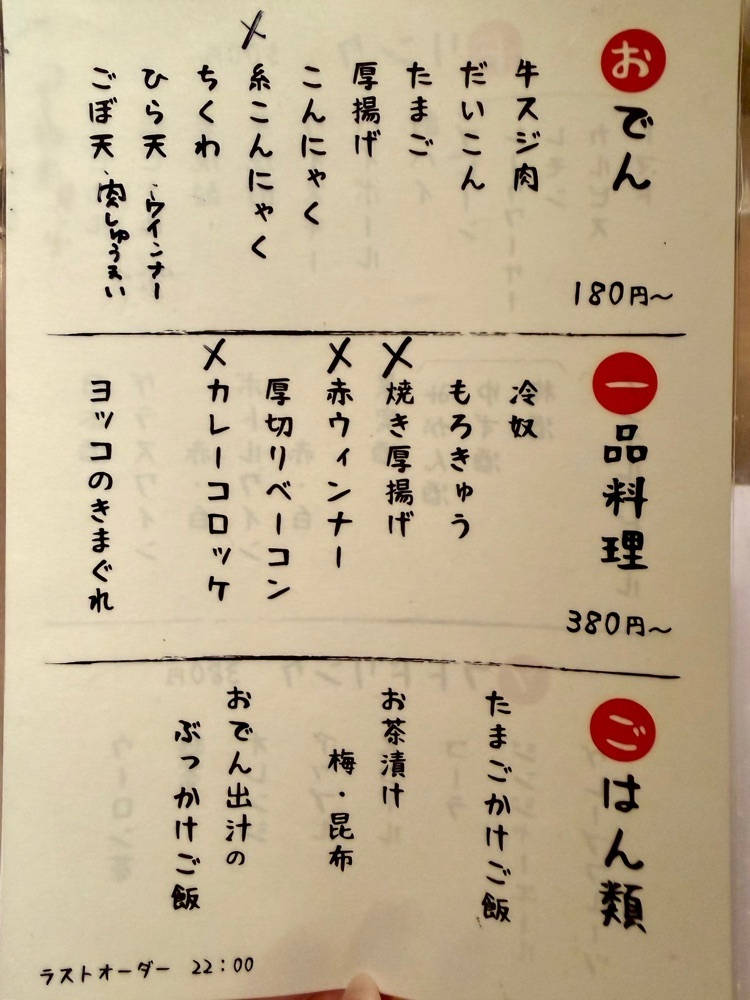 おでん
牛スジ肉
だいこん
たまご
厚揚げ
こんにゃく
糸こんにゃく
ちくわ
ひら天・ウインナー
ごぼ天・肉しゅうまい
180円～
一品料理
冷奴
もろきゅう
焼き厚揚げ
赤ウィンナー
厚切りベーコン
カレーコロッケ
ヨッコのきまぐれ
380円～
ごはん類
たまごかけご飯
お茶漬け
梅・昆布
おでん出汁の
ぶっかけご飯
ラストオーダー 22:00